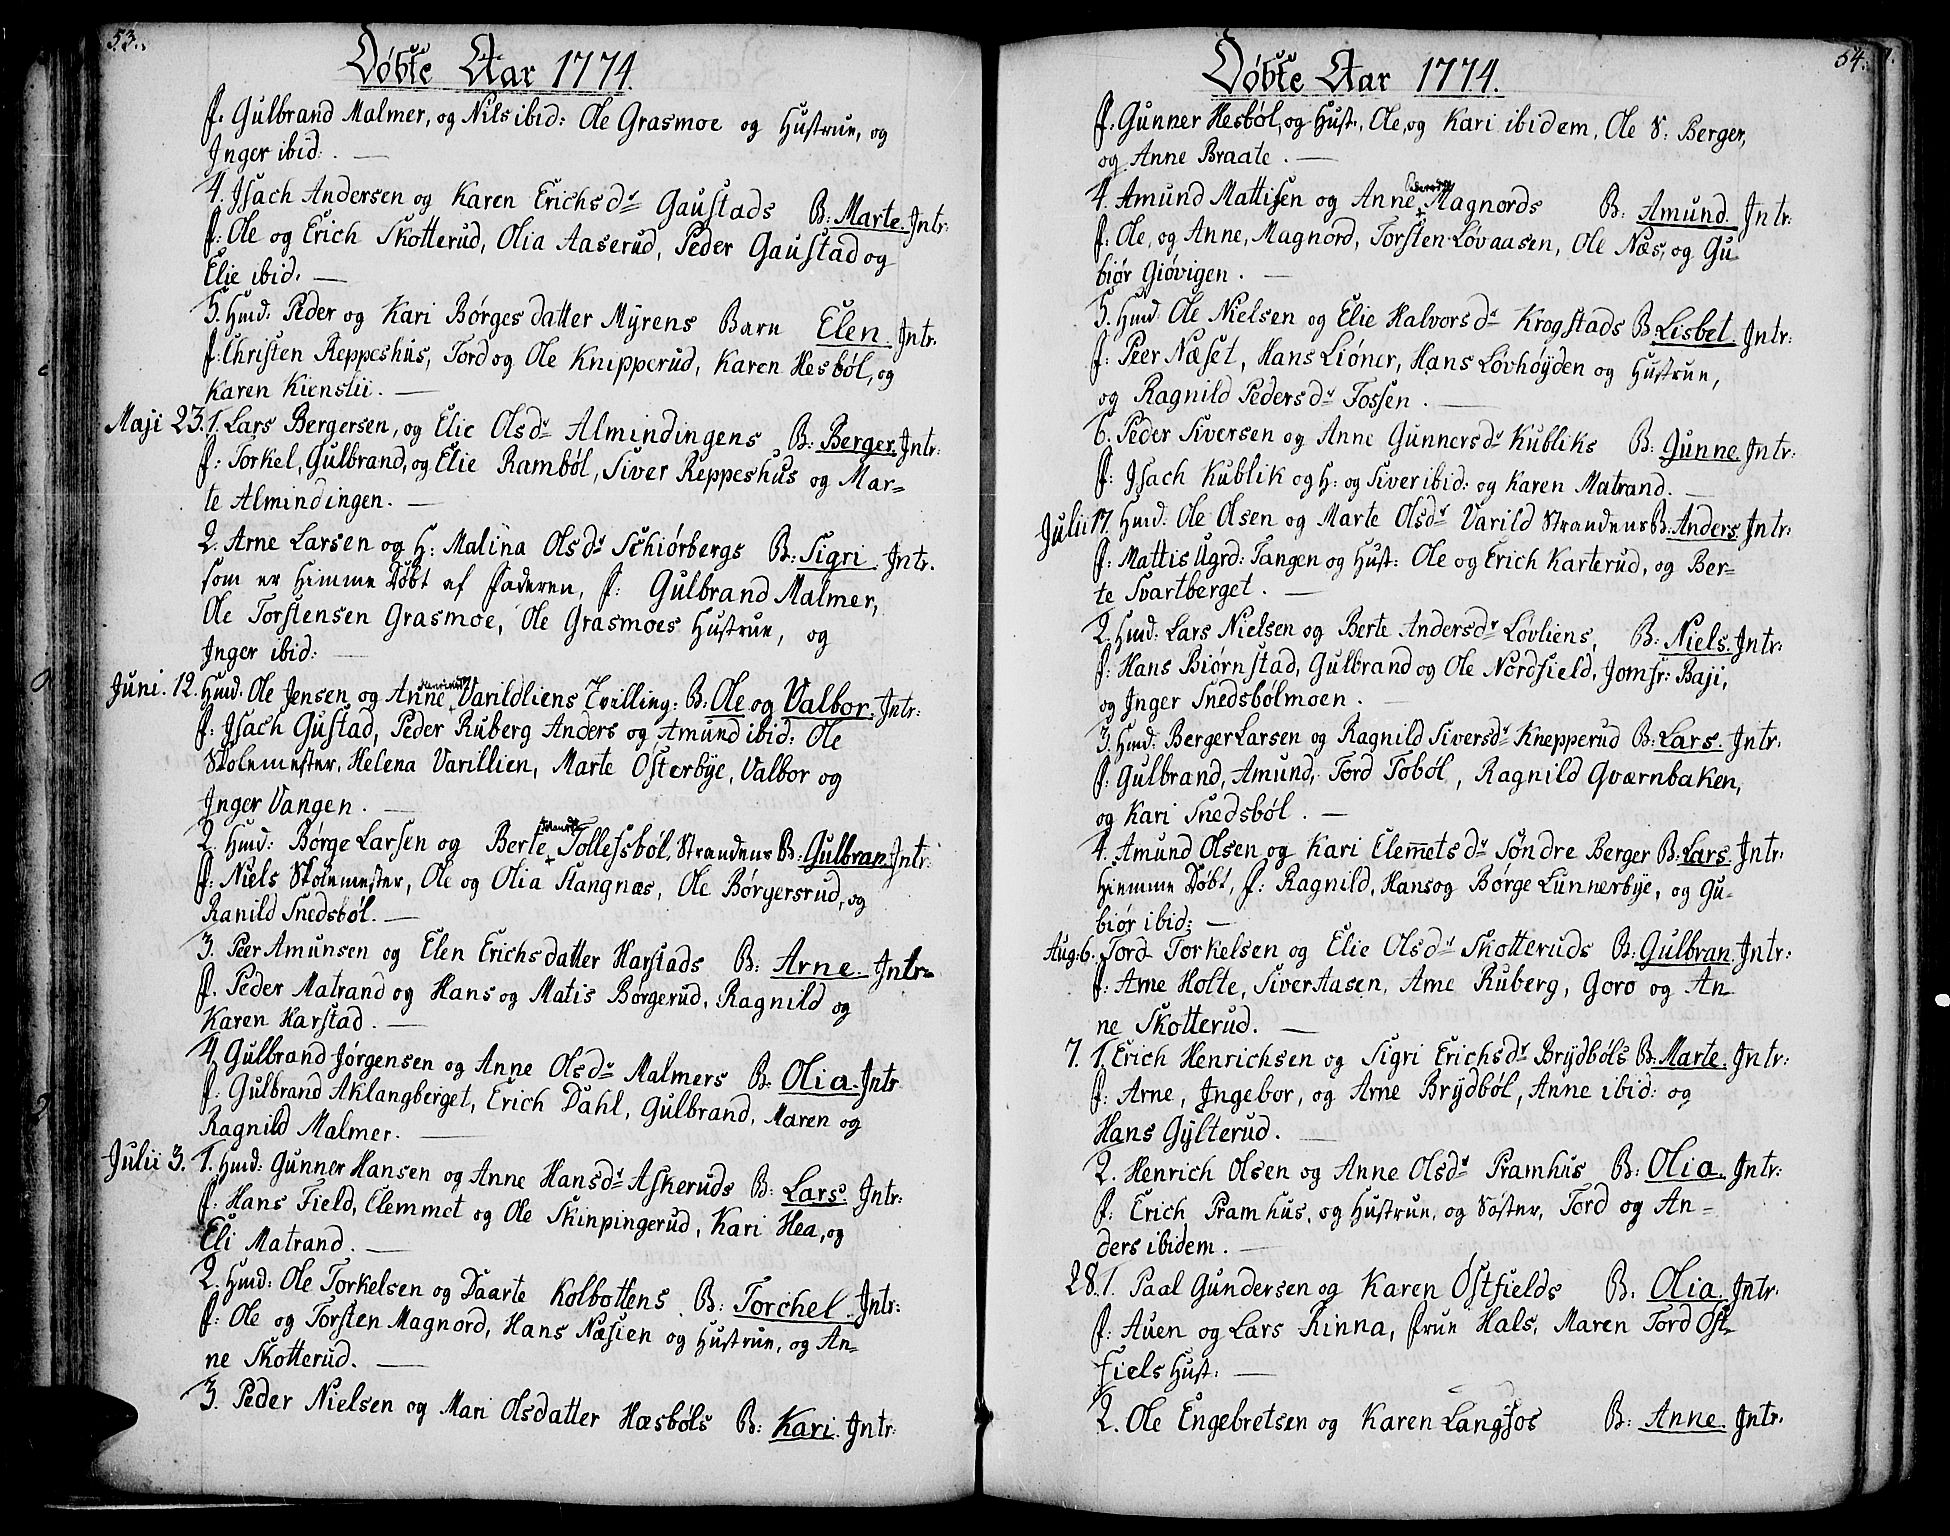 53.
Døbte Aar 1774.
F: Gulbrand Malmer, og Nils ibid: Ole Grasmoe og Hustrue, og
Inger ibid: . —
4. Jsach Andersen og Karen Erichsdr Gaustads B: Marte. Jntr:
F: Ole og Erich Skotterud, Olia Aaserud, Peder Gaustad og
Elie ibid. —
5. Hmd. Peder og Kari Børgesdatter Myrens Barn Elen. Jntr.
F: Christen Reppeshus, Tord og Ole Knipperud, Karen Hesbøl, og
Karen Kienslii. —
Maji 23. 1. Lars Bergersen, og Elie Olsdr Almindingens B: Berger. Jntr:
F: Torkel, Gulbrand, og Elie Rambøl, Siver Reppeshus og Mar=
te Almindingen. —
2. Arne Larsen og H: Malina Olsdr Schiørbergs B: Sigri. Jntr.
som er Hiemme Døbt af Faderen, F: Gulbrand Malmer,
Ole Torstensen Grasmoe, Ole Grasmoes Hustrue, og
Inger ibid: —
Juni. 12. Hmd: Ole Jensen og Anne Varildliens Tvilling: B: Ole og Valbor. Jntr:
F: Jsach Gustad, Peder Ruberg Anders og Amund ibid: Ole
Skolemester, Helena Varillien, Marte Østerbye, Valbor og
Inger Vangen. —
2. Hmd: Børge Larsen og Berte Tollefsbøl, Strandens B: Gulbran. Jntr:
F: Niels Skolemester, Ole og Olia Stangnæs, Ole Børgersrud, og
Ranild Snedsbøl. —
3. Peer Amunsen og Elen Erichsdatter Harstads B: Arne. Jntr=
F. Peder Matrand og Hans og Matis Børgerud, Ragnild og
Karen Harstad. —
4. Gulbrand Jørgensen og Anne Olsdr Malmers B: Olia. Jntr
F: Gulbrand Aklangberget, Erich Dahl, Gulbrand, Maren og
Ragnild Malmer. —
Julii 3. 1. Hmd: Gunner Hansen og Anne Hansdr Askeruds B: Lars. Jntr:
F: Hans Field, Clemmet og Ole Skinpingerud, Kari Hea, og
Eli Matrand. —
2. Hmd: Ole Torkelsen og Daarte Kolbottens. B: Torchel. Jntr:
F: Ole og Torsten Magnord, Hans Næsien og Hustrue, og An=
ne Skotterud. —
3. Peder Nielsen og Mari Olsdatter Hæsbøls B: Kari. Jntr:
54.
Døbte Aar 1774.
F: Gunner Hesbøl, og Hust., Ole, og Kari ibidem, Ole S: Berger,
og Anne Braate. —
4. Amund Mattisen og Anne Pedersdr Magnords B: Amund. Jntr:
F: Ole, og Anne, Magnord, Torsten Løvaasen, Ole Næs, og Gu
biør Giøvigen. —
5. Hmd: Ole Nielsen og Elie Halvorsdr Krogstads B: Lisbet. Jntr:
F: Peer Næset, Hans Liøner, Hans Løvhøyden og Hustrue,
og Ragnild Pedersdr Fossen. —
6. Peder Siversen og Anne Gunnersdr Kubliks B: Gunne. Jntr:
F: Jsach Kublik og H: og Siver ibid: og Karen Matrand. —
Julii 17. Hmd: Ole Olsen og Marte Olsdr Varild Strandens B: Anders. Jntr:
F: Mattis Ugrd: Tangen og Hust: Ole og Erich Karterud, og Ber=
te Svartberget. —
2. Hmd: Lars Nielsen og Berte Andersdr Løvliens, B: Niels. Jntr:
F: Hans Biørnstad, Gulbrand og Ole Nordfield, Jomfr: Baji,
og Inger Snedsbølmoen. —
3. Hmd: Berger Larsen og Ragnild Siversdr Knepperud B: Lars. Jntr.
F: Gulbrand, Amund, Tord Tobøl, Ragnild Qværnbaken,
og Kari Snedsbøl. —
4. Amund Olsen og Kari Clemetsdr Søndre Berger B: Lars. Jntr.
Hiemme Døbt, F: Ragnild, Hans og Børge Lunnerbye, og Gu=
biør ibid: —
Aug: 6. Tord Torkelsen og Elie Olsdr Skotteruds B: Gulbran. Jntr:
F: Arne Holte, Siver Aasen, Arne Ruberg, Goro og An
ne Skotterud. —
7. 1. Erich Henrichsen og Sigri Erichsdr Brydbøls B: Marte. Jntr:
F: Arne, Jngebor, og Arne Brydbøl, Anne ibid: og
Hans Gylterud. —
2. Henrich Olsen og Anne Olsdr Pramhus B: Olia. Jntr:
F: Erich Pramhus, og Hustrue, og Søster, Tord og An=
ders ibidem. —
28. 1. Paal Gundersen og Karen Østfields B: Olia. Jntr.
F: Auen og Lars Rinna, Frue Hals, Maren Tord Øst=
fiels Hust: —
2. Ole Engebretsen og Karen Langsos B: Anne. Jntr.